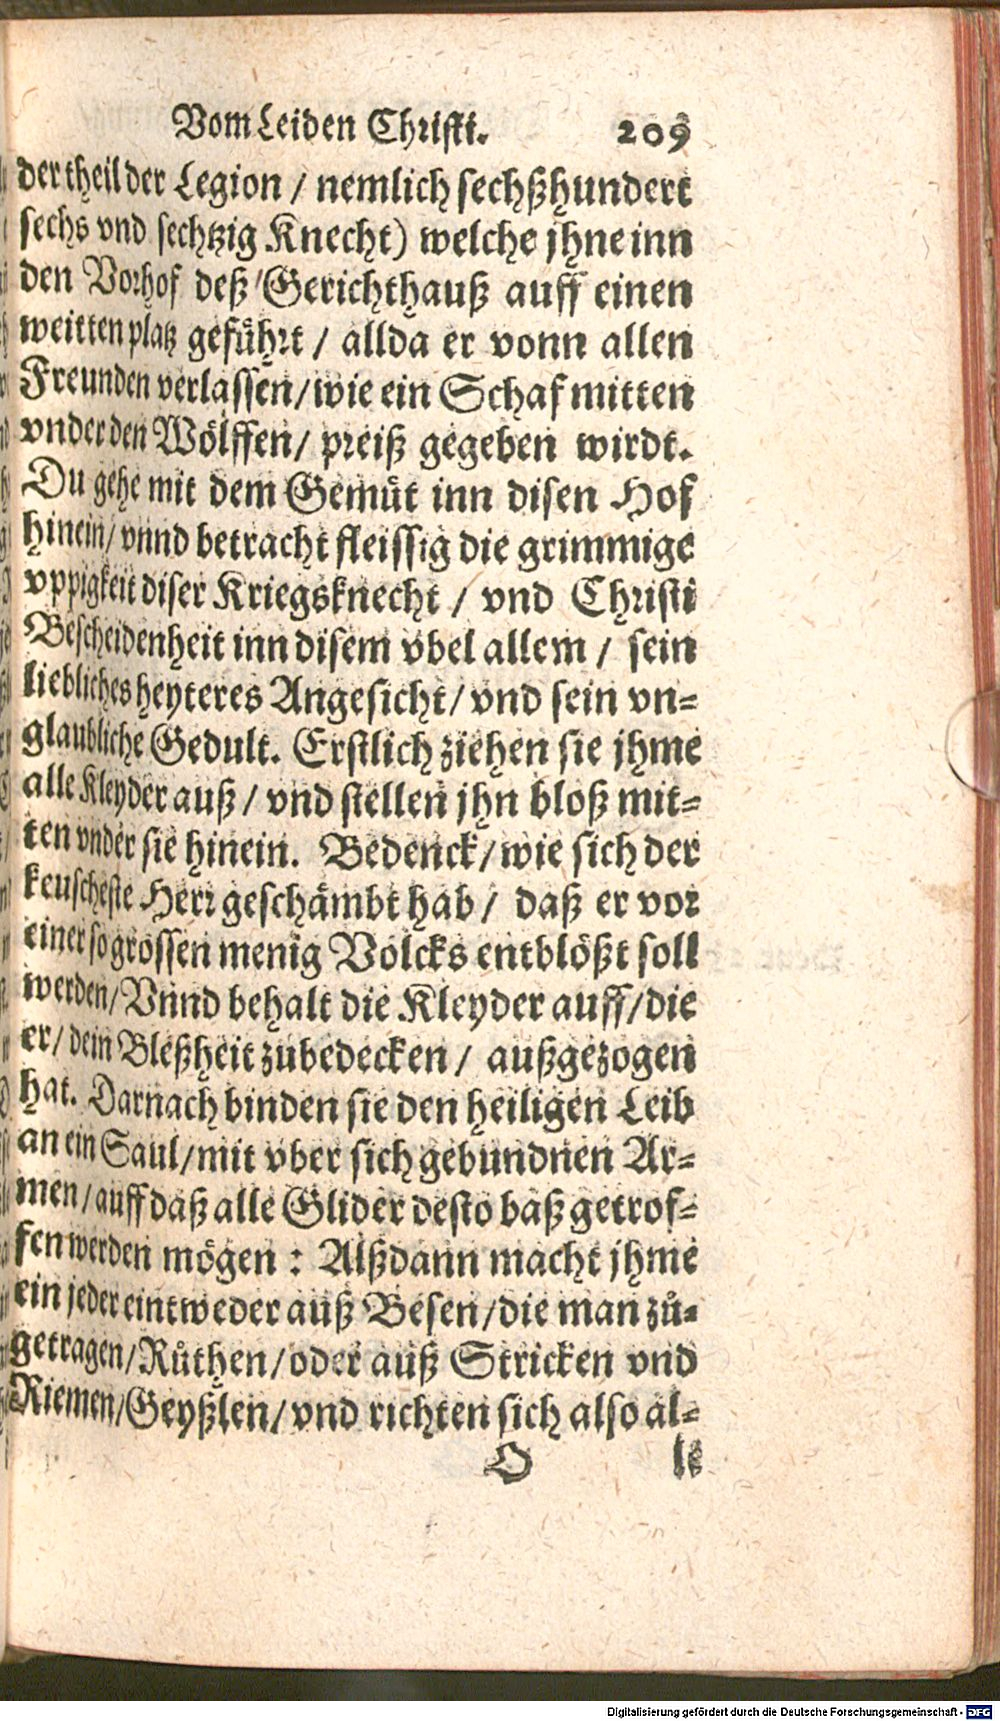 Vom Leiden Christi. 209
der theil der Legion / nemlich sechßhundert
sechs vnd sechtzig Knecht) welche jhne inn
den Vorhof deß Gerichthauß auff einen
weitten platz geführt / allda er vonn allen
Freunden verlassen / wie ein Schaf mitten
vnder den Wölffen / preiß gegeben wirdt.
Du gehe mit dem Gemüt inn disen Hof
hinein / vnnd betracht fleissig die grimmige
vppigkeit diser Kriegsknecht / vnd Christi
Bescheidenheit inn disem vbel allem / sein
liebliches heyteres Angesicht / vnd sein vn=
glaubliche Gedult. Erstlich ziehen sie jhme
alle Kleyder auß / vnd stellen jhn bloß mit=
ten vnder sie hinein. Bedenck / wie sich der
keuscheste Herr geschämbt hab / daß er vor
einer so grossen menig Volcks entblößt soll
werden / Vnnd behalt die Kleyder auff / die
er / dein Bleßheit zubedecken / außgezogen
hat. Darnach binden sie den heiligen Leib
an ein Saul / mit vber sich gebundnen Ar=
men / auff daß alle Glider desto baß getrof=
fen werden mögen : Alßdann macht jhme
ein jeder eintweder auß Besen / die man zů=
getragen / Růthen / oder auß Stricken vnd
Riemen / Geyßlen / vnd richten sich also al=
O le
Digitalisierung gefördert durch die Deutsche Forschungsgemeinschaft - DFG